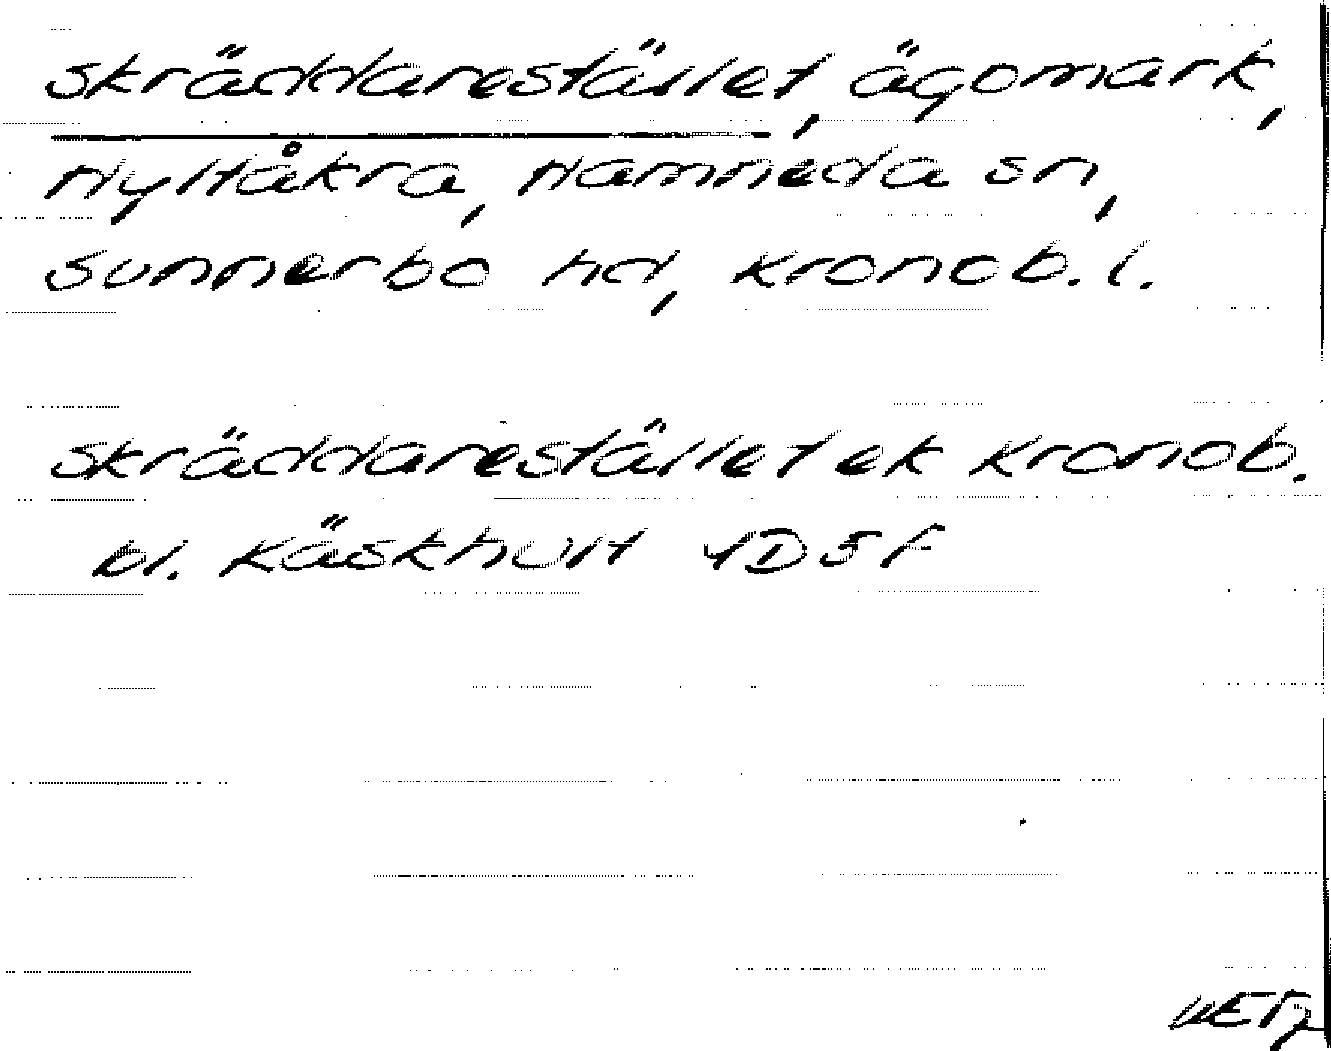 Skräddarestället, ägomark,
Nyltåkra, Hamneda sn,
Sunnerbo hd, Kronob. l.
Skräddarestället ek Kronob.
bl. Käskhult 4D5f